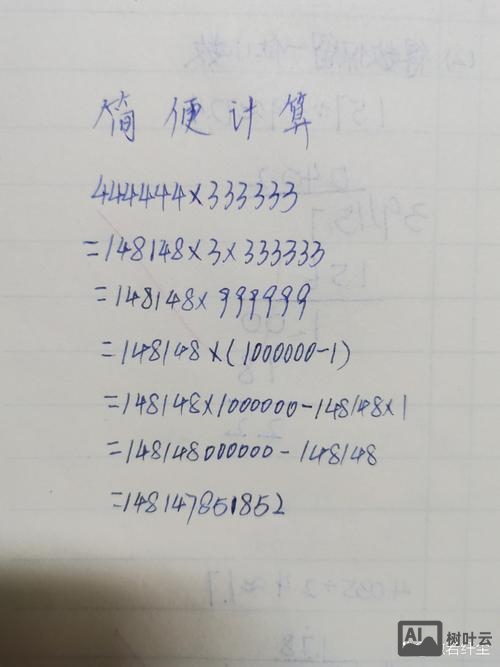 简便计算
444444×333333
=148148×3×333333
=148148×999999
=148148×(1000000-1)
=148148×1000000-148148×1
=148148000000-148148
=148147851852
AI
树叶云